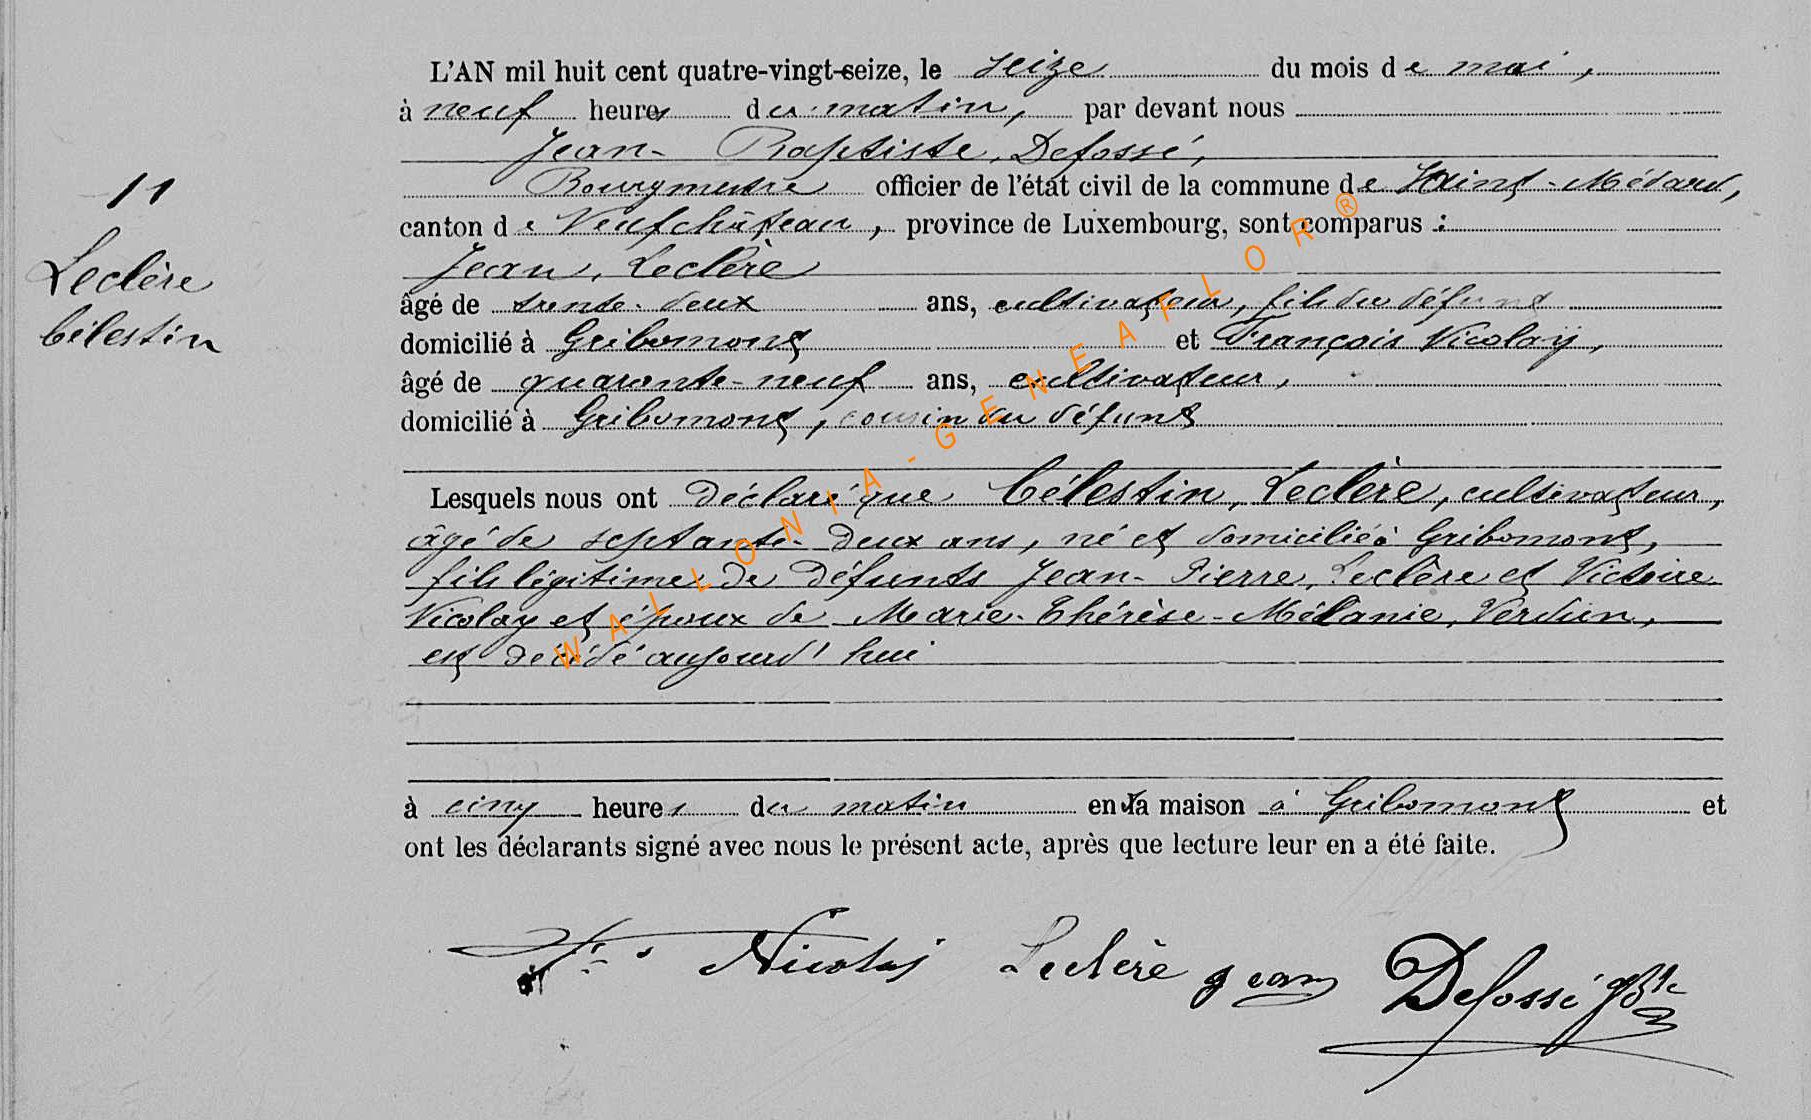 L'AN mil huit cent quatre-vingt-seize, le seize du mois de mai,
à neuf heures du matin, par devant nous
Jean-Baptiste, Defossé,
Bourgmestre officier de l'état civil de la commune de Saint-Médard,
canton de Neufchâteau, province de Luxembourg, sont comparus :
Jean, Leclère
âgé de trente-deux ans, cultivateur, fils du défunt
domicilié à Gribomont et François Nicolaÿ,
âgé de quarante-neuf ans, cultivateur,
domicilié à Gribomont, cousin du défunt
11
Leclère
Célestin
Lesquels nous ont déclaré que Célestin, Leclère, cultivateur,
âgé de septante-deux ans, né et domicilié à Gribomont,
fils légitime de défunts Jean-Pierre, Leclère et Victoire
Nicolay et époux de Marie-Thérèse-Mélanie, Verdun,
est décédé aujourd'hui
à cinq heures du matin en sa maison à Gribomont et
ont les déclarants signé avec nous le présent acte, après que lecture leur en a été faite.
Nicolaj Leclère jean Defossé JBte
WALLONIA-GENEAFLOR®